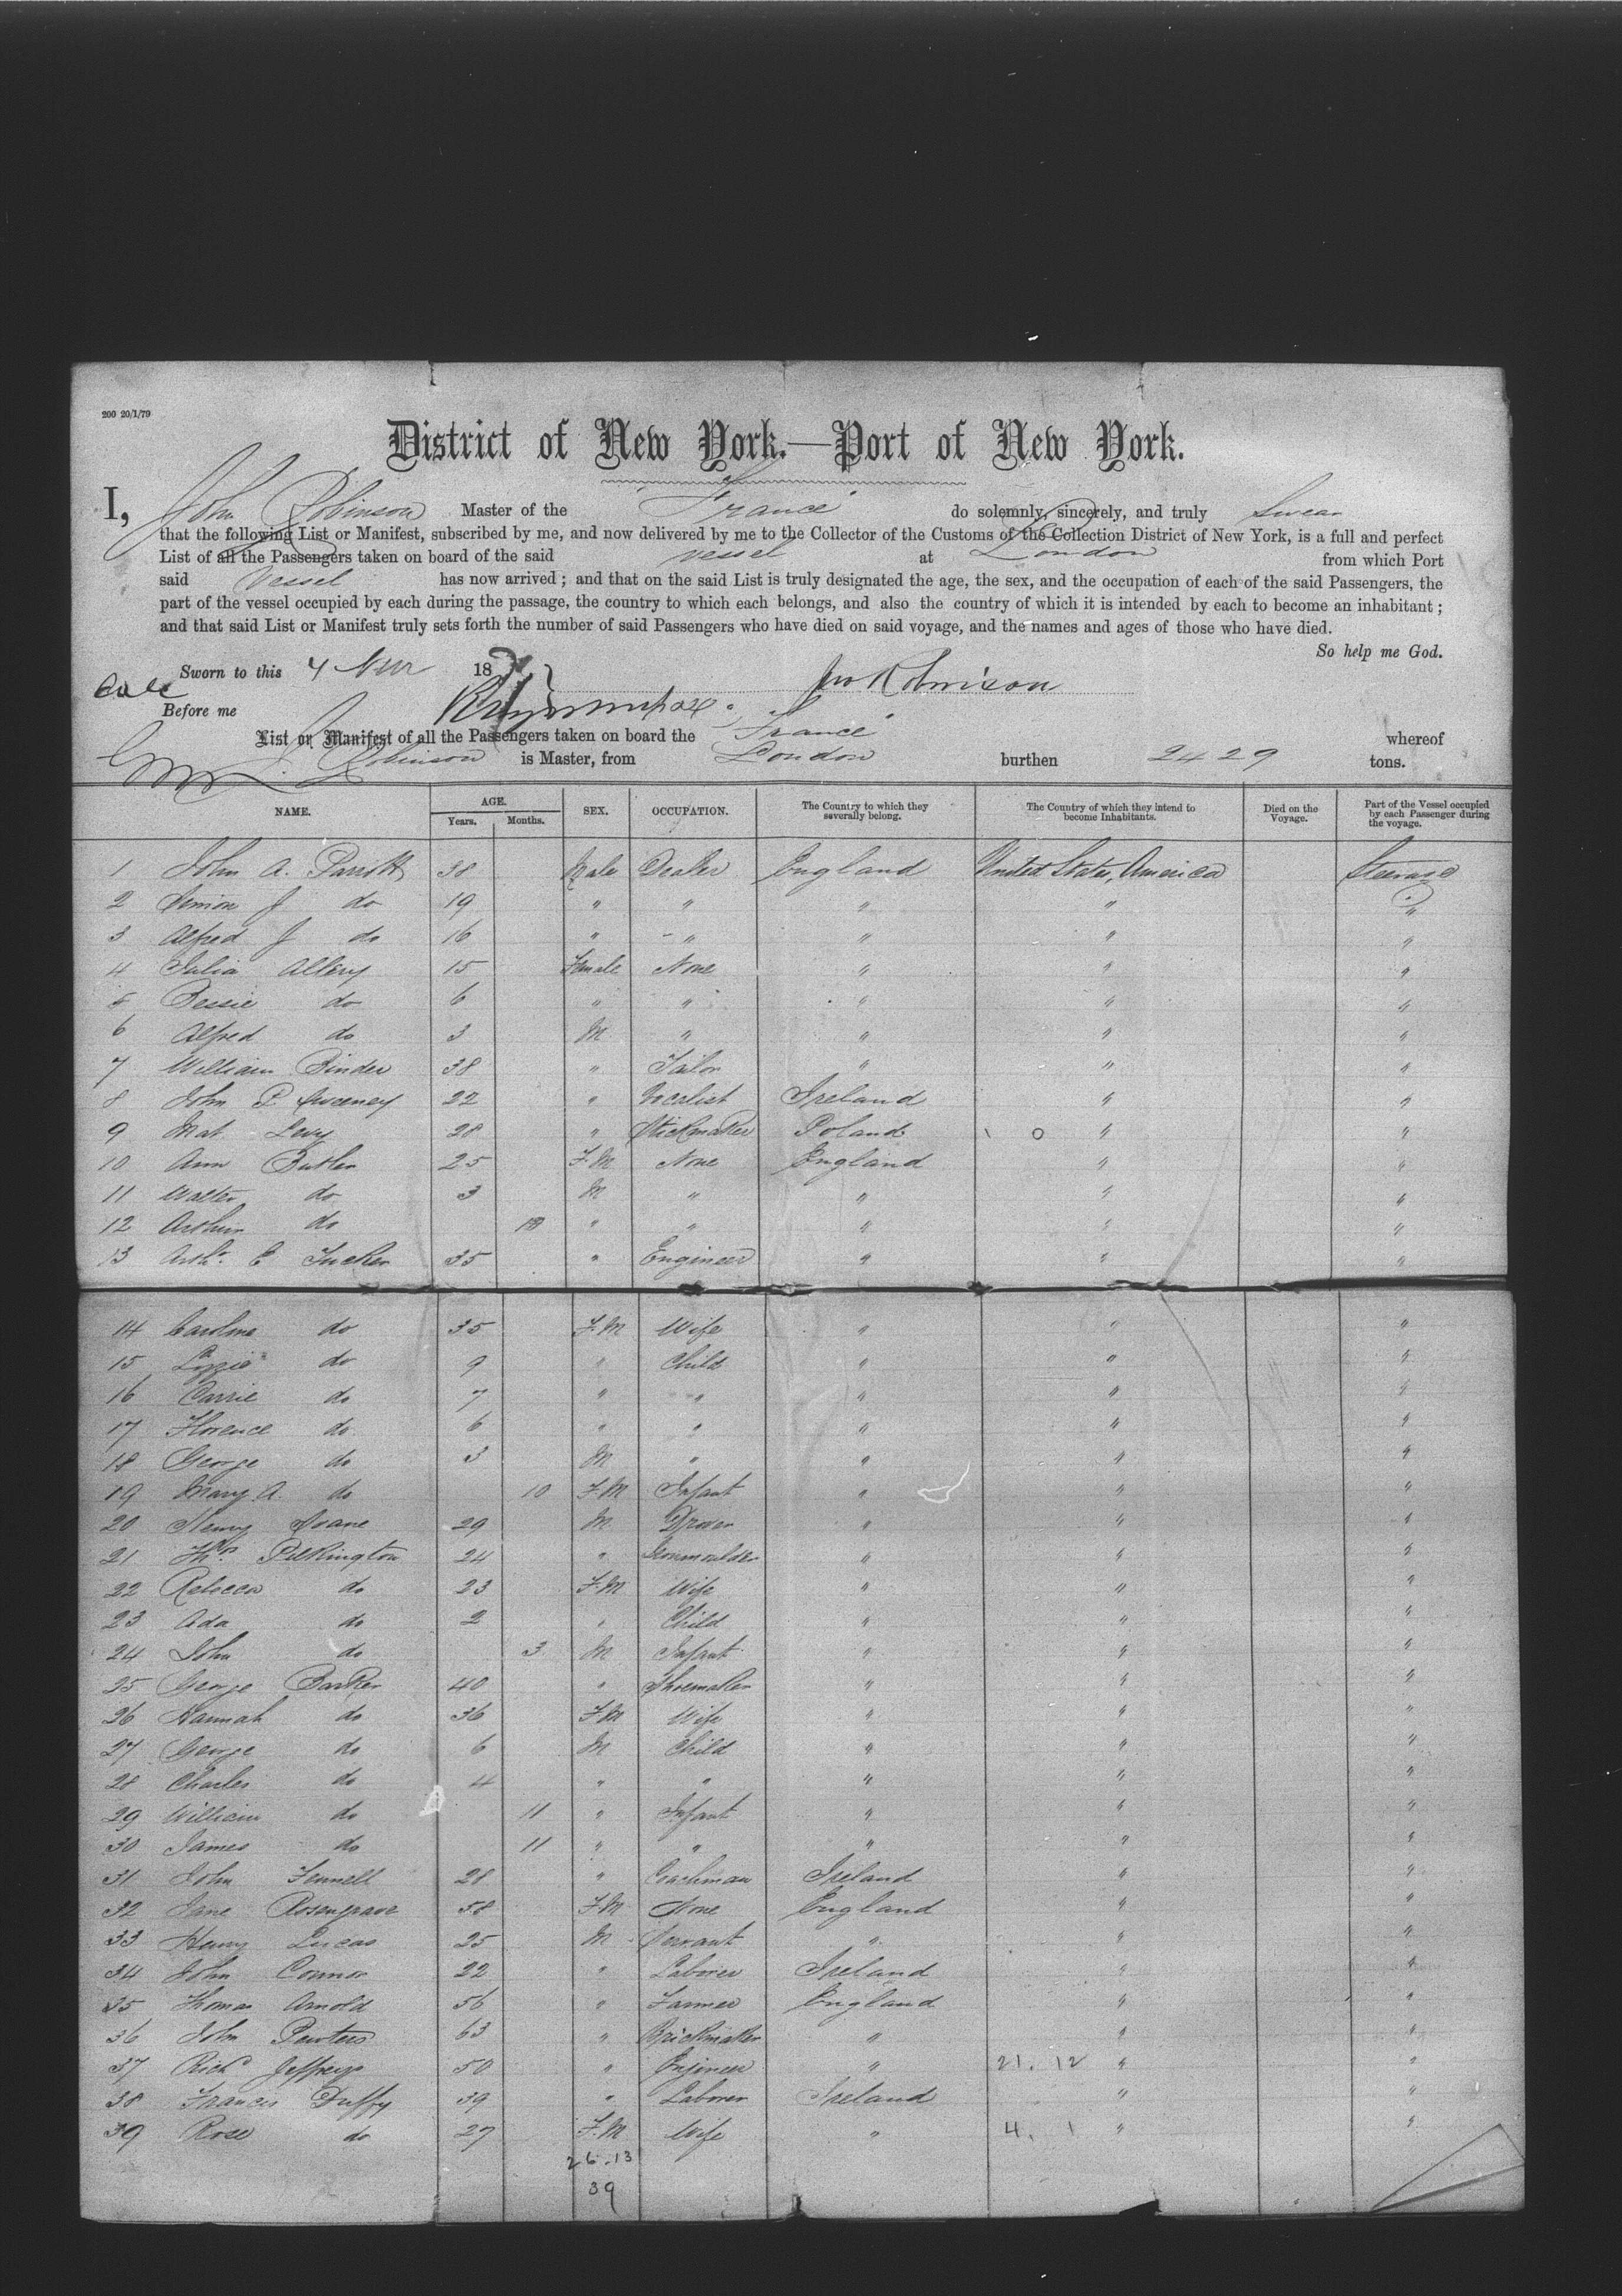 200 20/1/79
District of New York.—Port of New York.
I, John Robinson Master of the "France" do solemnly, sincerely, and truly Swear
that the following List or Manifest, subscribed by me, and now delivered by me to the Collector of the Customs of the Collection District of New York, is a full and perfect
List of all the Passengers taken on board of the said vessel at London from which Port
said Vessel has now arrived; and that on the said List is truly designated the age, the sex, and the occupation of each of the said Passengers, the
part of the vessel occupied by each during the passage, the country to which each belongs, and also the country of which it is intended by each to become an inhabitant;
and that said List or Manifest truly sets forth the number of said Passengers who have died on said voyage, and the names and ages of those who have died.
So help me God.
Sworn to this 4 187 Jno Robinson
Before me
List or Manifest of all the Passengers taken on board the "France" whereof
J. Robinson is Master, from London burthen 2429 tons.
NAME. AGE. Years. Months. SEX. OCCUPATION. The Country to which they severally belong. The Country of which they intend to become Inhabitants. Died on the Voyage. Part of the Vessel occupied by each Passenger during the voyage.
1 John A. Parrott 38 Male Dealer England United States, America Steerage
2 Simon J do 19 " " " " "
3 Alfred J do 16 " " " " "
4 Julia 15 Female None " " "
5 Bessie do 6 " " " " "
6 Alfred do 3 M " " " "
7 William Binder 38 " Tailor " " "
8 John P Sweeney 22 " Vocalist Ireland " "
9 Mat. Levy 28 " Stickmaker Poland 0 " "
10 Ann Butler 25 F.M None England " "
11 Walter do 3 M " " " "
12 Arthur do " " " " "
13 Arthr. E Tucker 35 " Engineer " " "
14 Caroline do 35 F.M Wife " " "
15 Lizzie do 9 " Child " " "
16 Carrie do 7 " " " " "
17 Florence do 6 " " " " "
18 George do 3 M " " " "
19 Mary A. do 10 F.M Infant " " "
20 Henry Doane 29 M Drover " " "
21 Thos. Pilkington 24 " Ironmoulder " " "
22 Rebecca do 23 F.M Wife " " "
23 Ada do 2 " Child " " "
24 John do 3 M Infant " " "
25 George Barker 40 " Shoemaker " " "
26 Hannah do 36 F.M Wife " " "
27 George do 6 M Child " " "
28 Charles do 4 " " " " "
29 William do 11 " Infant " " "
30 James do 11 " " " " "
31 John Fennell 28 " Coachman Ireland " "
32 Jane Rosengrave 58 F.M None England " "
33 Henry Lucas 25 M Servant " " "
34 John Connor 22 " Laborer Ireland " "
35 Thomas Arnold 56 " Farmer England " "
36 John Pewters 63 " Brickmaker " " "
37 Richd Jeffreys 50 " Engineer " 21. 12 " "
38 Francis Duffy 39 " Laborer Ireland " "
39 Rose do 27 F.M Wife " 4. 1 " "
26.13
39